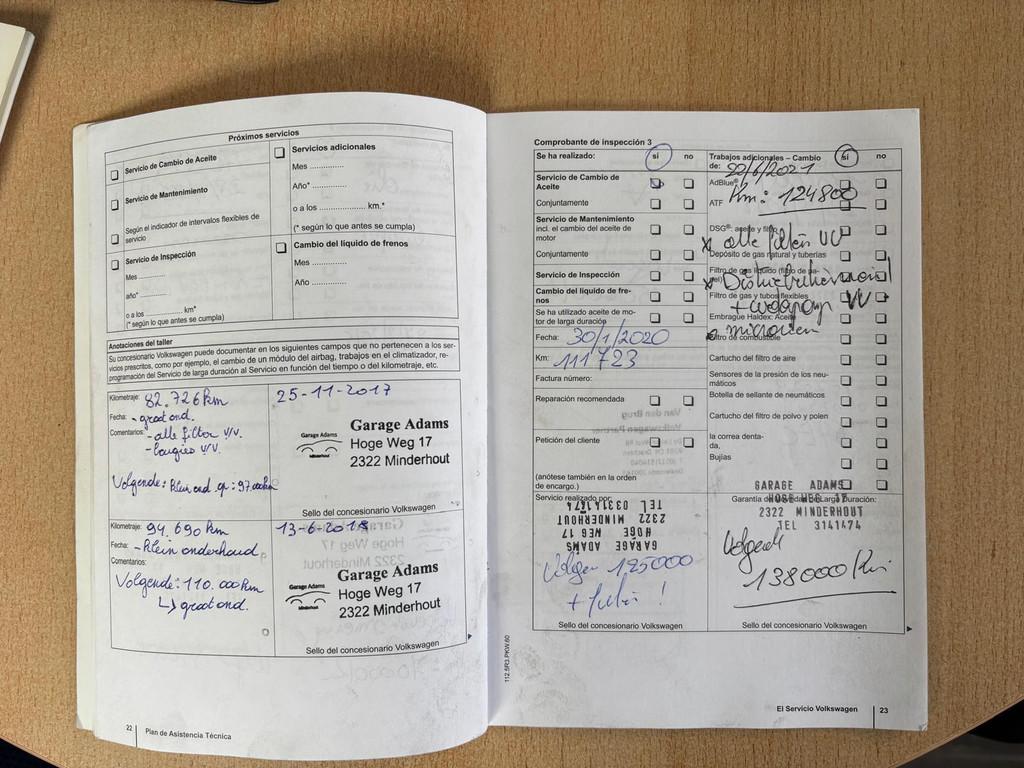 Próximos servicios
Servicio de Cambio de Aceite
Servicio de Mantenimiento
Según el indicador de intervalos flexibles de servicio
Servicio de Inspección
Mes ..........
año* ..........
o a los .................. km*
(* según lo que antes se cumpla)
Servicios adicionales
Mes .............
Año* .............
o a los .................. km.*
(* según lo que antes se cumpla)
Cambio del líquido de frenos
Mes .............
Año .............
Anotaciones del taller
Su concesionario Volkswagen puede documentar en los siguientes campos que no pertenecen a los ser-
vicios prescritos, como por ejemplo, el cambio de un módulo del airbag, trabajos en el climatizador, re-
programación del Servicio de larga duración al Servicio en función del tiempo o del kilometraje, etc.
Kilometraje: 82.726 km
25-11-2017
Fecha: - groot ond.
Comentarios: - alle filter v/v.
- bougies v/v.
Volgende: klein ond op: 97.000km
Garage Adams
Garage Adams
Hoge Weg 17
Minderhout
2322 Minderhout
Sello del concesionario Volkswagen
Kilometraje: 94.690 km
13-6-2018
Fecha: - klein onderhoud
Comentarios:
Volgende: 110.000km
↳ groot ond.
Garage Adams
Garage Adams
Hoge Weg 17
Minderhout
2322 Minderhout
Sello del concesionario Volkswagen
22 | Plan de Asistencia Técnica
Comprobante de inspección 3
Se ha realizado: sí no
Servicio de Cambio de
Aceite
Conjuntamente
Servicio de Mantenimiento
incl. el cambio del aceite de
motor
Conjuntamente
Servicio de Inspección
Cambio del líquido de fre-
nos
Se ha utilizado aceite de mo-
tor de larga duración
Fecha: 30/1/2020
Km: 111723
Factura número:
Reparación recomendada
Petición del cliente
(anótese también en la orden
de encargo.)
Servicio realizado por:
GARAGE ADAMS
HOGE WEG 17
2322 MINDERHOUT
TEL 03314 1474
125000
+ !
Sello del concesionario Volkswagen
Trabajos adicionales – Cambio
de: sí no
22/6/2021
AdBlue®
Km: 124800
ATF
DSG®, aceite y filtro
x alle filters VV
Depósito de gas natural y tuberías
Filtro de gas líquido (filtro de pa-
pel)
x Distributieriem
Filtro de gas y tubos flexibles
+ waterpomp VV
Embrague Haldex: Aceite
Filtro de combustible
Cartucho del filtro de aire
Sensores de la presión de los neu-
máticos
Botella de sellante de neumáticos
Cartucho del filtro de polvo y polen
la correa denta-
da,
Bujías
GARAGE ADAMS
HOGE WEG 17
2322 MINDERHOUT
TEL 3141474
Garantía de Larga Duración:
Volgende
138000 Km
Sello del concesionario Volkswagen
112.5R3.PKW.60
El Servicio Volkswagen | 23